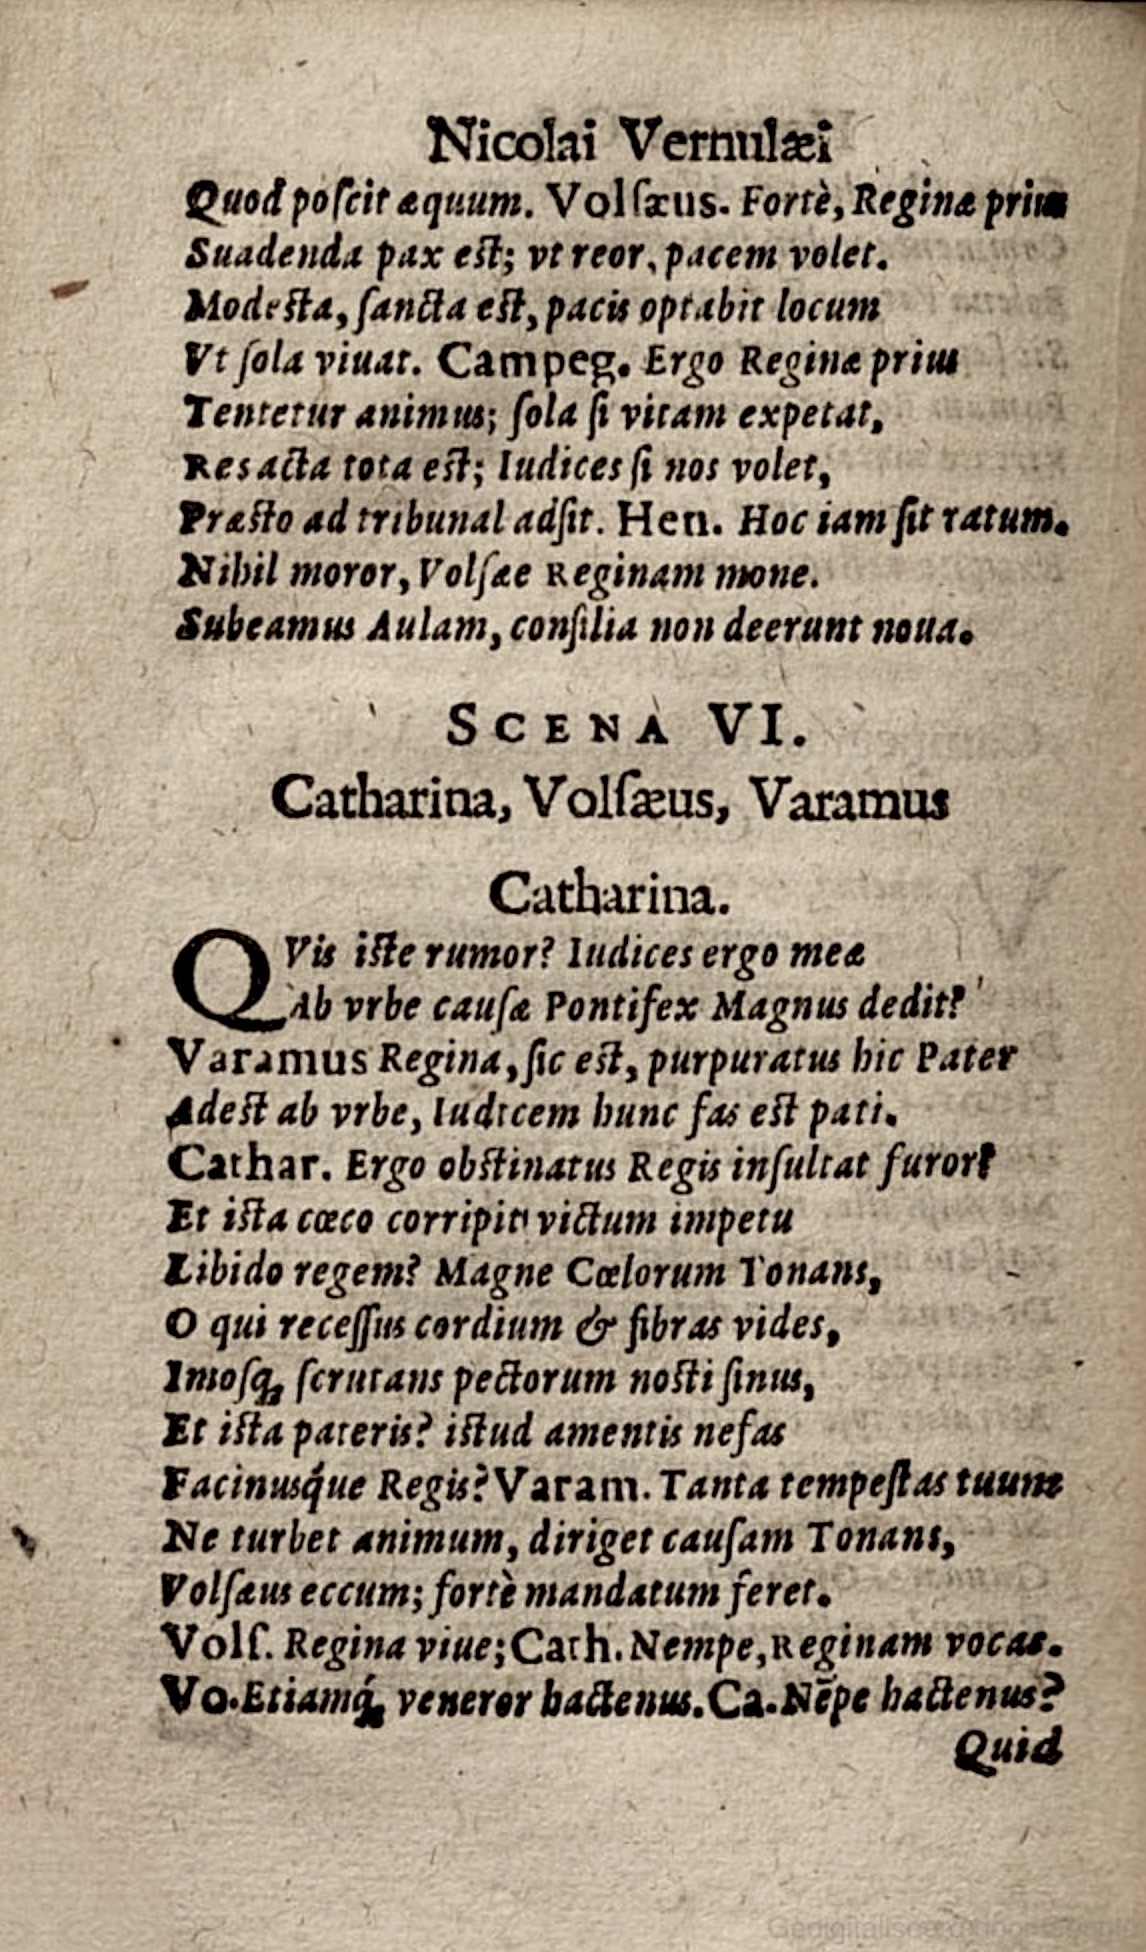 Nicolai Vernulæi
Quod poſcit æquum. Volſæus. Fortè, Reginæ prius
Suadenda pax eſt; vt reor, pacem volet.
Modeſta, ſancta eſt, pacis optabit locum
Vt ſola viuat. Campeg. Ergo Reginæ prius
Tentetur animus; ſola ſi vitam expetat,
Res acta tota eſt; Iudices ſi nos volet,
Præſto ad tribunal adſit. Hen. Hoc iam ſit ratum.
Nihil moror, Volſæe Reginam mone.
Subeamus Aulam, conſilia non deerunt noua.
SCENA VI.
Catharina, Volſæus, Varamus
Catharina.
QVis iſte rumor? Iudices ergo meæ
Ab vrbe cauſæ Pontifex Magnus dedit?
Varamus Regina, ſic eſt, purpuratus hic Pater
Adeſt ab vrbe, Iudicem hunc fas eſt pati.
Cathar. Ergo obſtinatus Regis inſultat furor?
Et iſta cœco corripit victum impetu
Libido regem? Magne Cœlorum Tonans,
O qui receſſus cordium & fibras vides,
Imoſq; ſcrutans pectorum noſti ſinus,
Et iſta pateris? iſtud amentis nefas
Facinusq́ue Regis? Varam. Tanta tempeſtas tuum
Ne turbet animum, diriget cauſam Tonans,
Volſæus eccum; fortè mandatum feret.
Volſ. Regina viue; Cath. Nempe, Reginam vocas.
Vo. Etiamq́; veneror hactenus. Ca. Nēpe hactenus?
Quid